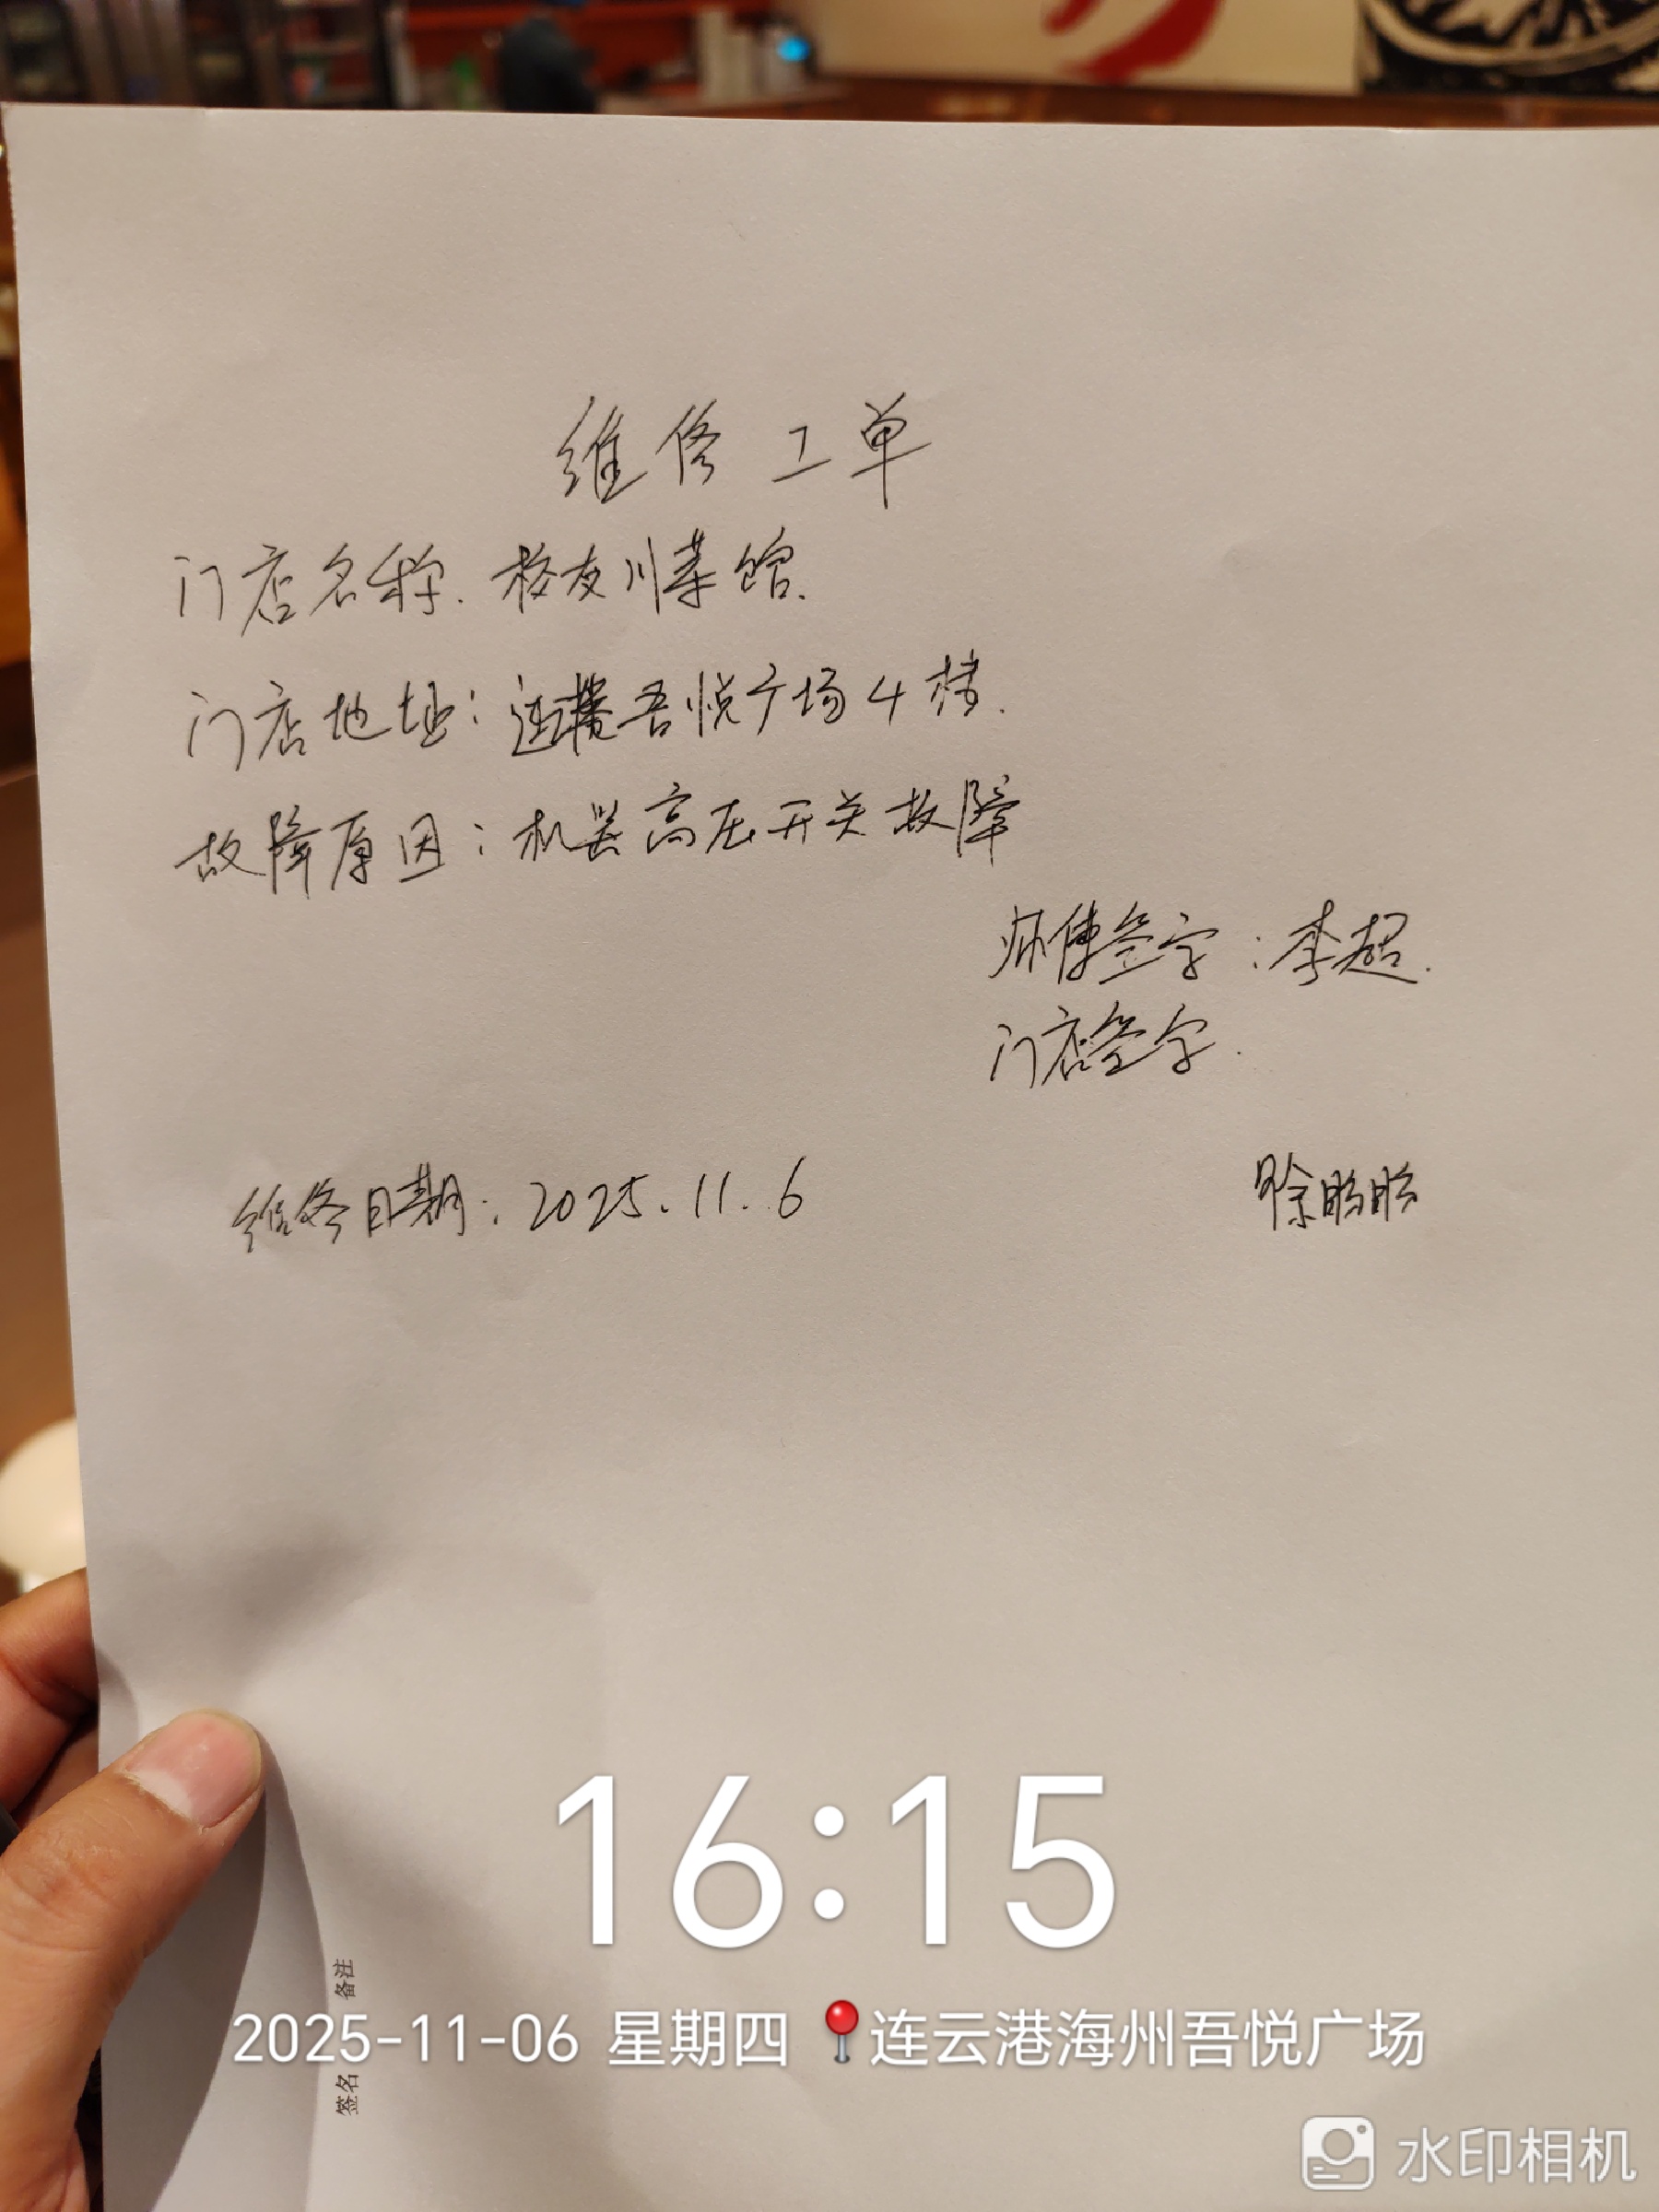 维修工单
门店名称.校友川菜馆.
门店地址:吾悦广场4栋.
故障原因:机器高压开关故障
师傅签字:李超.
门店签字.
维修日期:2025.11.6
徐
16:15
2025-11-06 星期四 连云港海州吾悦广场
签名 备注
水印相机